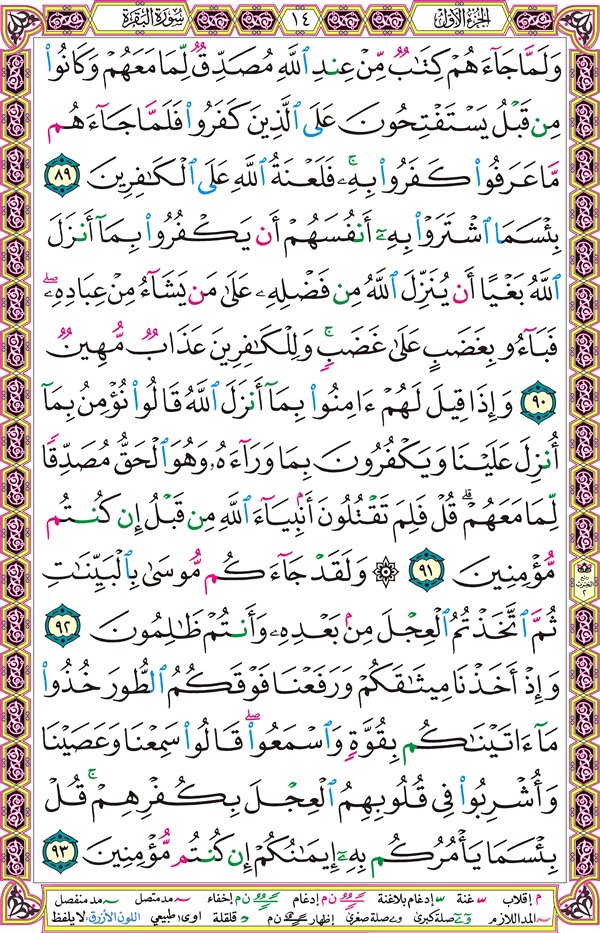 الجزء الأول
١٤
سورة البقرة
وَلَمَّا جَآءَهُمْ كِتَٰبٌ مِّنْ عِندِ ٱللَّهِ مُصَدِّقٌ لِّمَا مَعَهُمْ وَكَانُوا۟
مِن قَبْلُ يَسْتَفْتِحُونَ عَلَى ٱلَّذِينَ كَفَرُوا۟ فَلَمَّا جَآءَهُم
مَّا عَرَفُوا۟ كَفَرُوا۟ بِهِۦۚ فَلَعْنَةُ ٱللَّهِ عَلَى ٱلْكَٰفِرِينَ ٨٩
بِئْسَمَا ٱشْتَرَوْا۟ بِهِۦٓ أَنفُسَهُمْ أَن يَكْفُرُوا۟ بِمَآ أَنزَلَ
ٱللَّهُ بَغْيًا أَن يُنَزِّلَ ٱللَّهُ مِن فَضْلِهِۦ عَلَىٰ مَن يَشَآءُ مِنْ عِبَادِهِۦۖ
فَبَآءُو بِغَضَبٍ عَلَىٰ غَضَبٍۚ وَلِلْكَٰفِرِينَ عَذَابٌ مُّهِينٌ
٩٠ وَإِذَا قِيلَ لَهُمْ ءَامِنُوا۟ بِمَآ أَنزَلَ ٱللَّهُ قَالُوا۟ نُؤْمِنُ بِمَآ
أُنزِلَ عَلَيْنَا وَيَكْفُرُونَ بِمَا وَرَآءَهُۥ وَهُوَ ٱلْحَقُّ مُصَدِّقًا
لِّمَا مَعَهُمْۗ قُلْ فَلِمَ تَقْتُلُونَ أَنۢبِيَآءَ ٱللَّهِ مِن قَبْلُ إِن كُنتُم
مُّؤْمِنِينَ ٩١ ۞ وَلَقَدْ جَآءَكُم مُّوسَىٰ بِٱلْبَيِّنَٰتِ
ثُمَّ ٱتَّخَذْتُمُ ٱلْعِجْلَ مِنۢ بَعْدِهِۦ وَأَنتُمْ ظَٰلِمُونَ ٩٢
وَإِذْ أَخَذْنَا مِيثَٰقَكُمْ وَرَفَعْنَا فَوْقَكُمُ ٱلطُّورَ خُذُوا۟
مَآ ءَاتَيْنَٰكُم بِقُوَّةٍ وَٱسْمَعُوا۟ۖ قَالُوا۟ سَمِعْنَا وَعَصَيْنَا
وَأُشْرِبُوا۟ فِى قُلُوبِهِمُ ٱلْعِجْلَ بِكُفْرِهِمْۚ قُلْ
بِئْسَمَا يَأْمُرُكُم بِهِۦٓ إِيمَٰنُكُمْ إِن كُنتُم مُّؤْمِنِينَ ٩٣
م إقلاب غنة إدغام بلاغنة ن م إدغام ن م إخفاء مد متصل مد منفصل
المد اللازم صلة كبرى صلة صغرى إظهار ن م قلقلة اوى: طبيعي اللون الأزرق: لا يلفظ